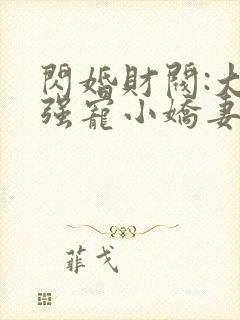 閃婚財閥:大
强寵小嬌妻
菲戈